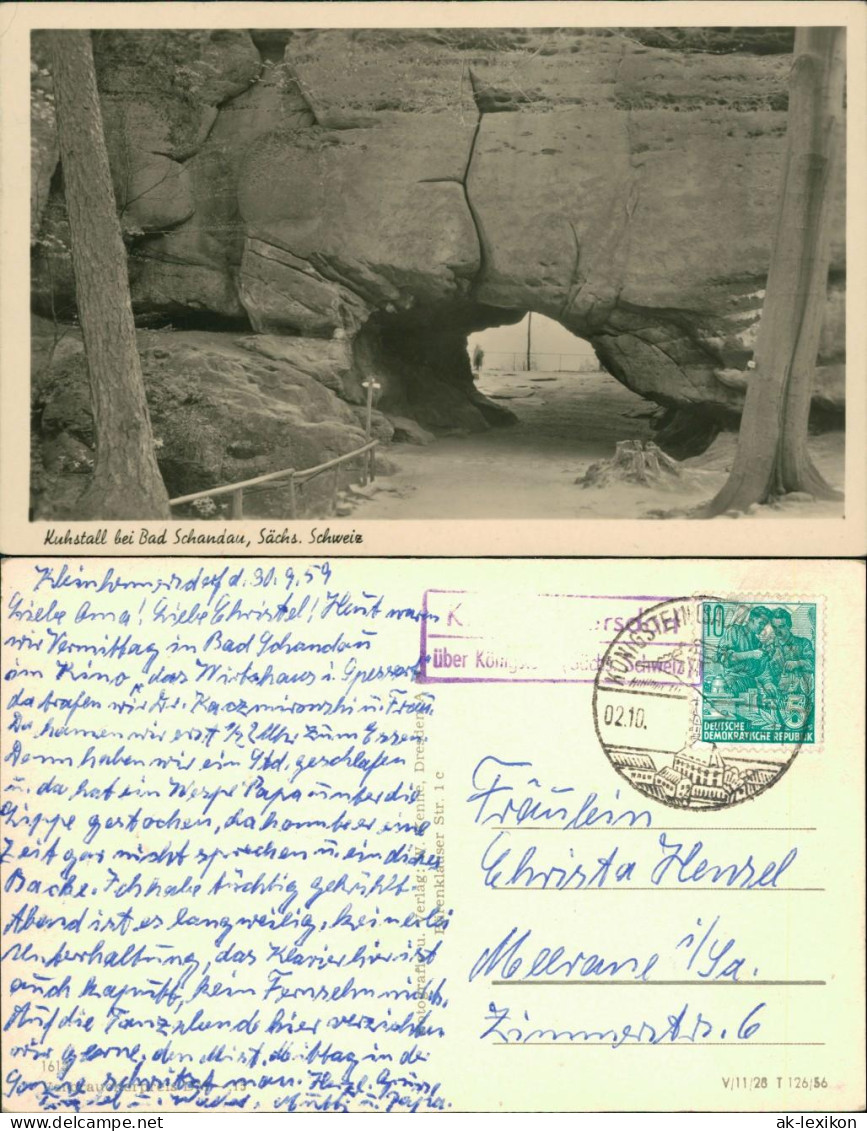 Kuhstall bei Bad Schandau, Sächs. Schweiz
Kleinhennersdorf d. 30.9.59
Liebe Oma! Liebe Christel! Heut waren
wir Vormittag in Bad Schandau
im Kino "das Wirtshaus i. Spessart
da trafen wir Dr. Kaczmironski u. Frau.
Da kamen wir erst ½2 Uhr zum Essen.
Dann haben wir ein Std. geschlafen
u. da hat ein Wespe Papa unter die
Lippe gestochen, da konnte er eine
Zeit gar nicht sprechen u. ein dicke
Backe. Ich habe tüchtig gekühlt
Abend ist es langweilig, keinerlei
Unterhaltung, das Klavier hier ist
auch kaputt, kein Fernsehn nich.
Auf die Tanzstunde hier verzichten
wir gerne, den Mist. Mittag in der
schwitzt man. Herzl. Grüße
Mutti u. Papa.
über Königstein (Sächs. Schweiz)
KÖNIGSTEIN
02.10.
10
5
DEUTSCHE
DEMOKRATISCHE REPUBLIK
Verlag: W. Dresden A
Bärenklauser Str. 1 c
Fräulein
Christa Henzel
Meerane i/Sa.
Zimmerstr. 6
V/11/28 T 126/56
ak-lexikon